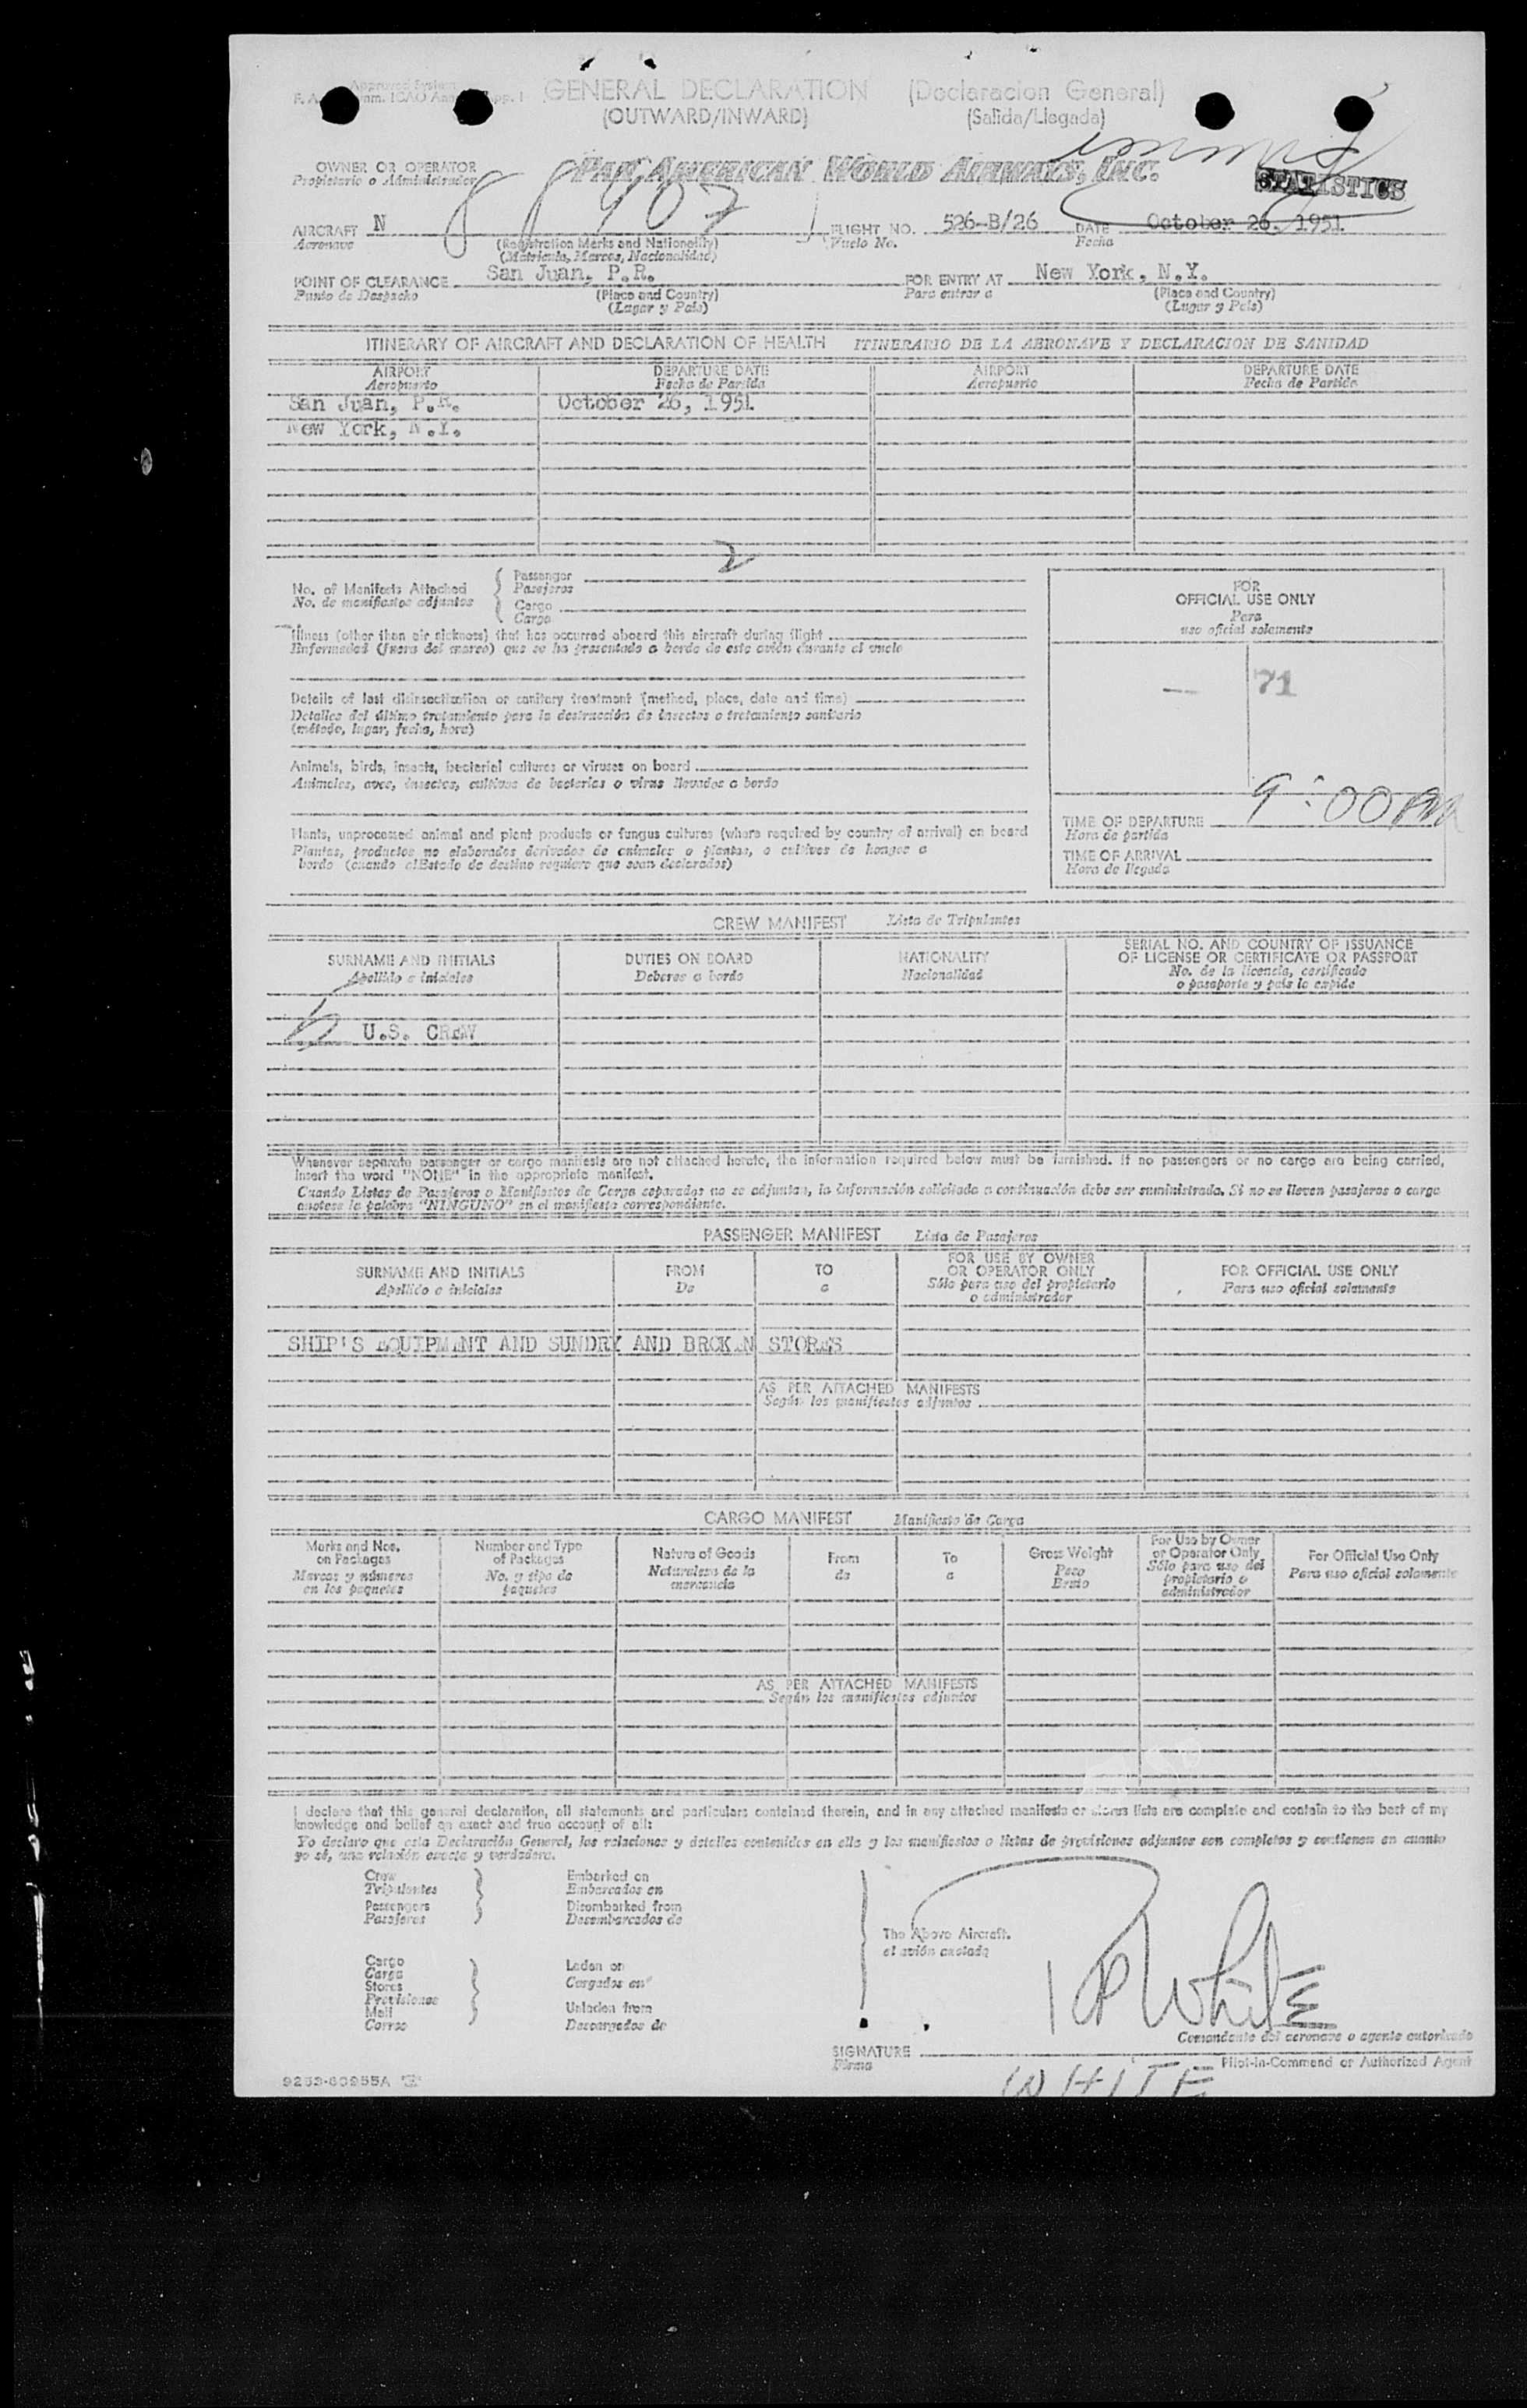 GENERAL DECLARATION (Declaracion General)
(OUTWARD/INWARD) (Salida/Llegada)
OWNER OR OPERATOR PAN AMERICAN WORLD AIRWAYS, INC.
Propietario o Administrador
STATISTICS
AIRCRAFT N 88907 FLIGHT NO. 526-B/26 DATE October 26, 1951
Aeronave (Registration Marks and Nationality) Vuelo No. Fecha
(Matricula, Marcas, Nacionalidad)
POINT OF CLEARANCE San Juan, P.R. FOR ENTRY AT New York, N.Y.
Punto de Despacho (Place and Country) Para entrar a (Place and Country)
(Lugar y País) (Lugar y País)
ITINERARY OF AIRCRAFT AND DECLARATION OF HEALTH ITINERARIO DE LA AERONAVE Y DECLARACION DE SANIDAD
AIRPORT DEPARTURE DATE AIRPORT DEPARTURE DATE
Aeropuerto Fecha de Partida Aeropuerto Fecha de Partida
San Juan, P.R. October 26, 1951
New York, N.Y.
2
No. of Manifests Attached Passenger
No. de manifiestos adjuntos Pasajeros
Cargo
Carga
FOR
OFFICIAL USE ONLY
Para
uso oficial solamente
Illness (other than air sickness) that has occurred aboard this aircraft during flight
Enfermedad (fuera del mareo) que se ha presentado a bordo de este avión durante el vuelo
— 71
Details of last disinsectization or sanitary treatment (method, place, date and time)
Detalles del último tratamiento para la destrucción de insectos o tratamiento sanitario
(método, lugar, fecha, hora)
Animals, birds, insects, bacterial cultures or viruses on board
Animales, aves, insectos, cultivos de bacterias o virus llevados a bordo
TIME OF DEPARTURE 9:00PM
Hora de partida
TIME OF ARRIVAL
Hora de llegada
Plants, unprocessed animal and plant products or fungus cultures (where required by country of arrival) on board
Plantas, productos no elaborados derivados de animales o plantas, o cultivos de hongos a
bordo (cuando el Estado de destino requiere que sean declarados)
CREW MANIFEST Lista de Tripulantes
SURNAME AND INITIALS DUTIES ON BOARD NATIONALITY SERIAL NO. AND COUNTRY OF ISSUANCE
OF LICENSE OR CERTIFICATE OR PASSPORT
Apellido e iniciales Deberes a bordo Nacionalidad No. de la licencia, certificado
o pasaporte y país lo expide
U.S. CREW
Whenever separate passenger or cargo manifests are not attached hereto, the information required below must be furnished. If no passengers or no cargo are being carried,
insert the word "NONE" in the appropriate manifest.
Cuando Listas de Pasajeros o Manifiestos de Carga separados no se adjuntan, la información solicitada a continuación debe ser suministrada. Si no se llevan pasajeros o carga
anotese la palabra "NINGUNO" en el manifiesto correspondiente.
PASSENGER MANIFEST Lista de Pasajeros
SURNAME AND INITIALS FROM TO FOR USE BY OWNER
OR OPERATOR ONLY FOR OFFICIAL USE ONLY
Apellido e iniciales De a Sólo para uso del propietario
o administrador Para uso oficial solamente
SHIP'S EQUIPMENT AND SUNDRY AND BROKEN STORES
AS PER ATTACHED MANIFESTS
Según los manifiestos adjuntos
CARGO MANIFEST Manifiesto de Carga
Marks and Nos.
on Packages
Marcas y números
en los paquetes
Number and Type
of Packages
No. y tipo de
paquetes
Nature of Goods
Naturaleza de la
mercancia
From
de
To
a
Gross Weight
Peso
Bruto
For Use by Owner
or Operator Only
Sólo para uso del
propietario o
administrador
For Official Use Only
Para uso oficial solamente
AS PER ATTACHED MANIFESTS
Según los manifiestos adjuntos
I declare that this general declaration, all statements and particulars contained therein, and in any attached manifests or stores lists are complete and contain to the best of my
knowledge and belief an exact and true account of all:
Yo declaro que esta Declaración General, las relaciones y detalles contenidos en ella y los manifiestos o listas de provisiones adjuntos son completos y contienen en cuanto
yo sé, una relación exacta y verdadera.
Crew Embarked on
Tripulantes Embarcados en
Passengers Disembarked from
Pasajeros Desembarcados de
The Above Aircraft.
el avión anotado
Cargo Laden on
Carga Cargados en
Stores
Provisiones
Mail Unladen from
Correo Descargados de
White
Comandante del aeronave o agente autorizado
SIGNATURE
Firma
Pilot-in-Command or Authorized Agent
WHITE
9253-60955A